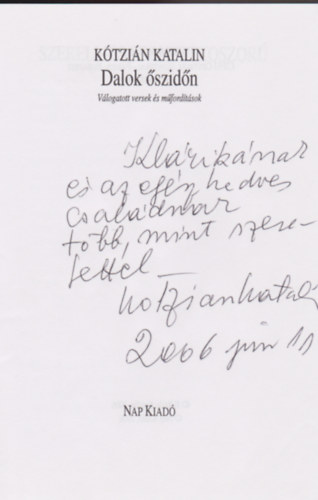 KÓTZIÁN KATALIN
Dalok őszidőn
Válogatott versek és műfordítások
Klárikának
és az egész kedves
családnak
több, mint szere-
tettel –
Kótzián Katalin
2006 jún 11
NAP KIADÓ